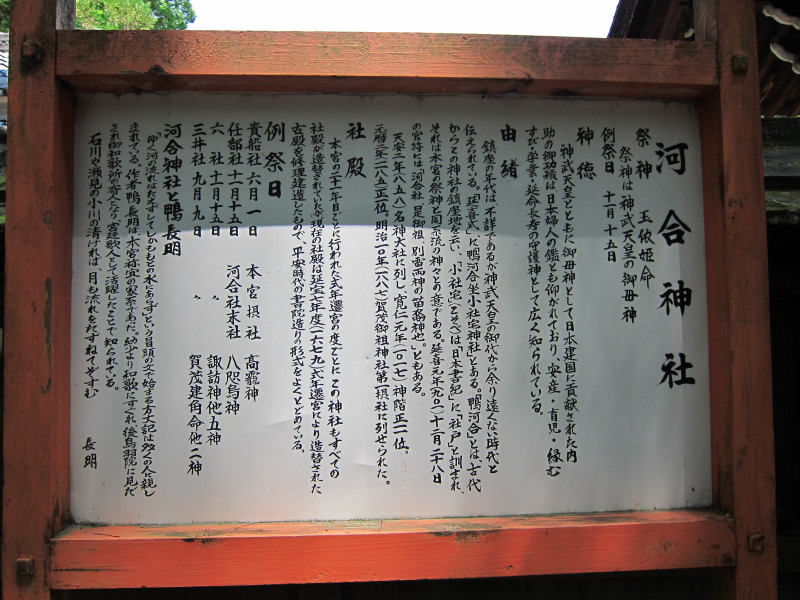 河合神社
祭神 玉依姫命
祭神は神武天皇の御母神
例祭日 十一月十五日
神徳
神武天皇とともに御母神として日本建国に貢献された内
助の御功績は日本婦人の鑑とも仰がれており、安産・育児・縁む
すび・学業・延命長寿の守護神として広く知られている。
由緒
鎮座の年代は、不詳であるが神武天皇の御代から余り遠くない時代と
伝えられている。「延喜式」に「鴨河合坐小社宅神社」とある。「鴨河合」とは、古代
からこの神社の鎮座地を云い、「小社宅(こそべ)」は「日本書紀」に、「社戸」と訓まれ、
それは本宮の祭神と同系流の神々との意である。延喜元年(九〇一)十二月二十八日
の官符には、「河合社、是御祖、別雷両神の苗裔神也。」ともある。
天安二年(八五八)名神大社に列し、寛仁元年(一〇一七)神階正一位。
元暦二年(一一八五)正一位。明治一〇年(一八七七)賀茂御祖神社第一摂社に列せられた。
社殿
本宮の二十一年目ごとに行われた式年遷宮の度ごとに、この神社もすべての
社殿が造替されていたが、現在の社殿は延宝七年度(一六七九)式年遷宮により造替された
古殿を修理建造したもので、平安時代の書院造りの形式をよくとどめている。
例祭日
貴船社 六月一日 本宮摂社 高龗神
任部社 十一月十五日 河合社末社 八咫烏神
六社 十一月十五日 〃 諏訪神他五神
三井社 九月九日 〃 賀茂建角身命他二神
河合神社と鴨長明
「ゆく河の流れはたえずしてしかももとの水にあらず」という冒頭の文で始まる方丈記は多くの人に親し
まれている。作者鴨長明は、本宮祢宜の家系であった。幼少より和歌にすぐれ、後鳥羽院に見だ
され御和歌所の寄人となり、宮廷歌人として活躍したことで知られている。
石川や瀬見の小川の清ければ、月も流れをたずねてぞすむ 長明